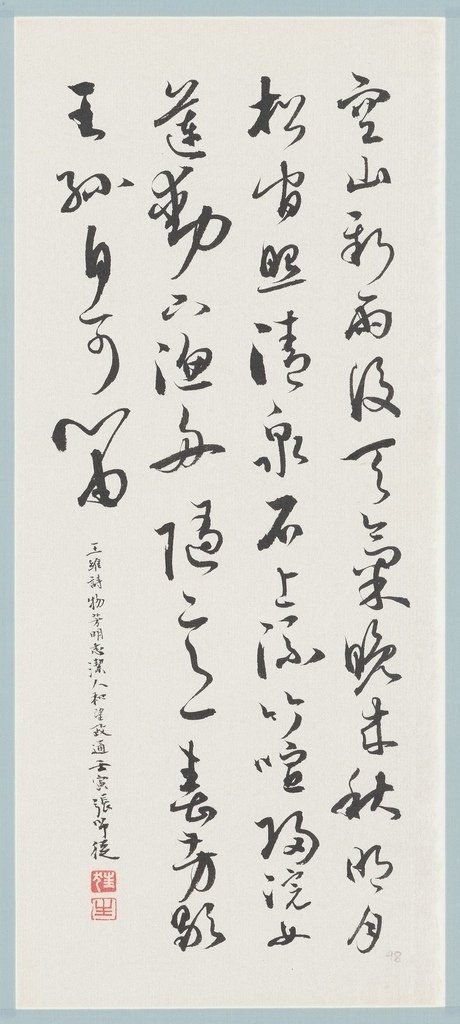 空山新雨後天氣晚来秋明月
松間照清泉石上流竹喧歸浣女
蓮動下漁舟隨意春芳歇
王孫自可留
王維詩物芳明志潔人和望政通壬寅張
98